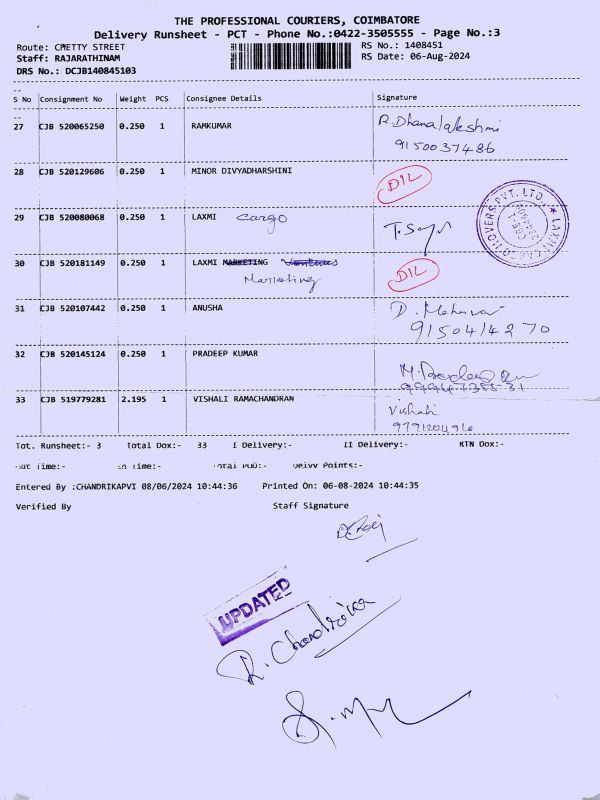 THE PROFESSIONAL COURIERS, COIMBATORE
Delivery Runsheet - PCT - Phone No.:0422-3505555 - Page No.:3
Route: CMETTY STREET RS No.: 1408451
Staff: RAJARATHINAM RS Date: 06-Aug-2024
DRS No.: DCJB140845103
S No Consignment No Weight PCS Consignee Details Signature
27 CJB 520065250 0.250 1 RAMKUMAR R. Dhanalakshmi
9150037486
28 CJB 520129606 0.250 1 MINOR DIVYADHARSHINI DIL
29 CJB 520080068 0.250 1 LAXMI cargo
30 CJB 520181149 0.250 1 LAXMI MARKETING DIL
Marketing
31 CJB 520107442 0.250 1 ANUSHA
9150414270
32 CJB 520145124 0.250 1 PRADEEP KUMAR
33 CJB 519779281 2.195 1 VISHALI RAMACHANDRAN Vishali
Tot. Runsheet:- 3 Total Dox:- 33 I Delivery:- II Delivery:- KTN Dox:-
Entered By :CHANDRIKAPVI 08/06/2024 10:44:36 Printed On: 06-08-2024 10:44:35
Verified By Staff Signature
UPDATED
R. Chandrika